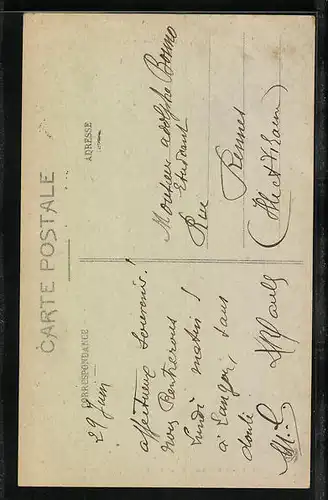 CARTE POSTALE
CORRESPONDANCE
29 Juin
affectueux souvenir!
nous rentrerons
Lundi matin!
à Langon, sans
doute
ADRESSE
Monsieur Adolphe Bonno
Etudiant
Rue
Rennes
(Ille et Vilaine)